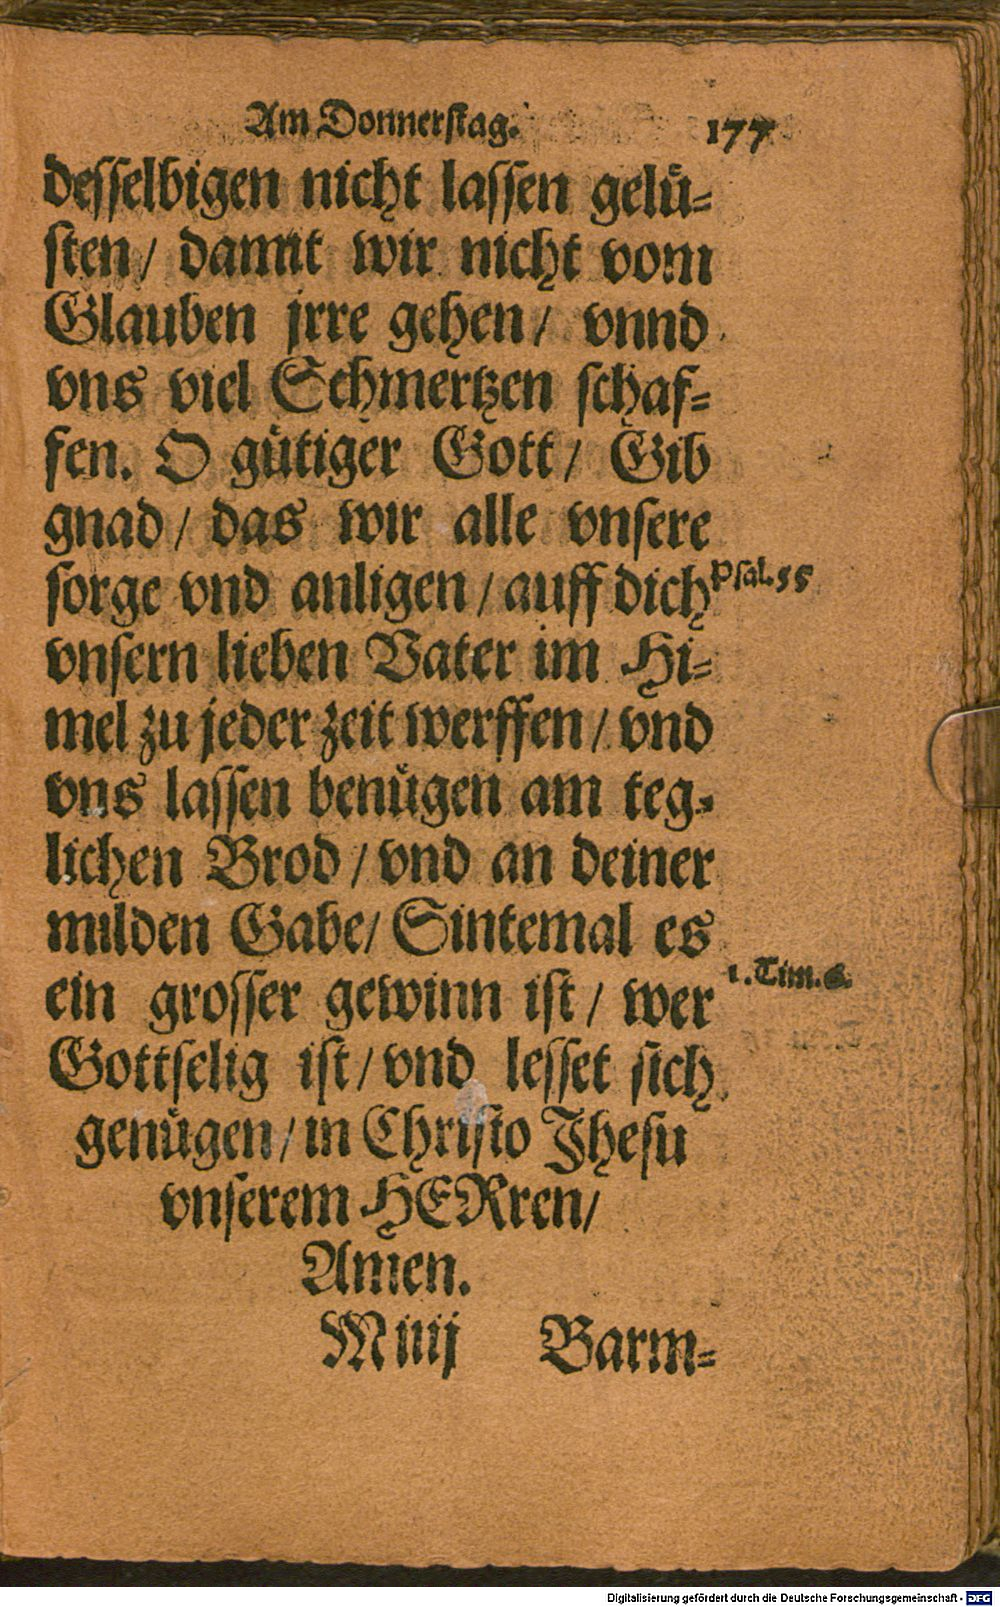 Am Donnerstag. 177
desselbigen nicht lassen gelü=
sten/ damit wir nicht vom
Glauben jrre gehen/ vnnd
vns viel Schmertzen schaf=
fen. O gütiger Gott/ Gib
gnad/ das wir alle vnsere
sorge vnd anligen/ auff dich Psal. 55
vnsern lieben Vater im Hi=
mel zu jeder zeit werffen/ vnd
vns lassen benügen am teg=
lichen Brod/ vnd an deiner
milden Gabe/ Sintemal es
ein grosser gewinn ist/ wer 1. Tim. 6.
Gottselig ist/ vnd lesset sich
genügen/ in Christo Jhesu
vnserem HERren/
Amen.
M iiij Barm=
Digitalisierung gefördert durch die Deutsche Forschungsgemeinschaft - DFG